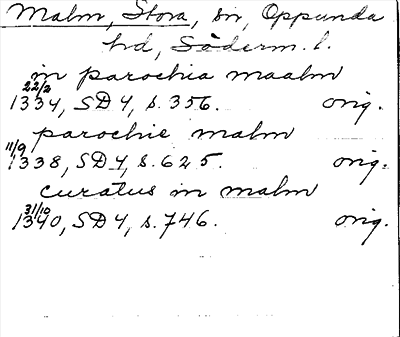 Malm, Stora, sn, Oppunda
hd, Söderm. l.
in parochia maalm
22/2
1334, SD 4, s. 356. orig.
parochie malm
11/9
1338, SD 4, s. 625. orig.
curatus in malm
31/10
1340, SD 4, s. 746. orig.